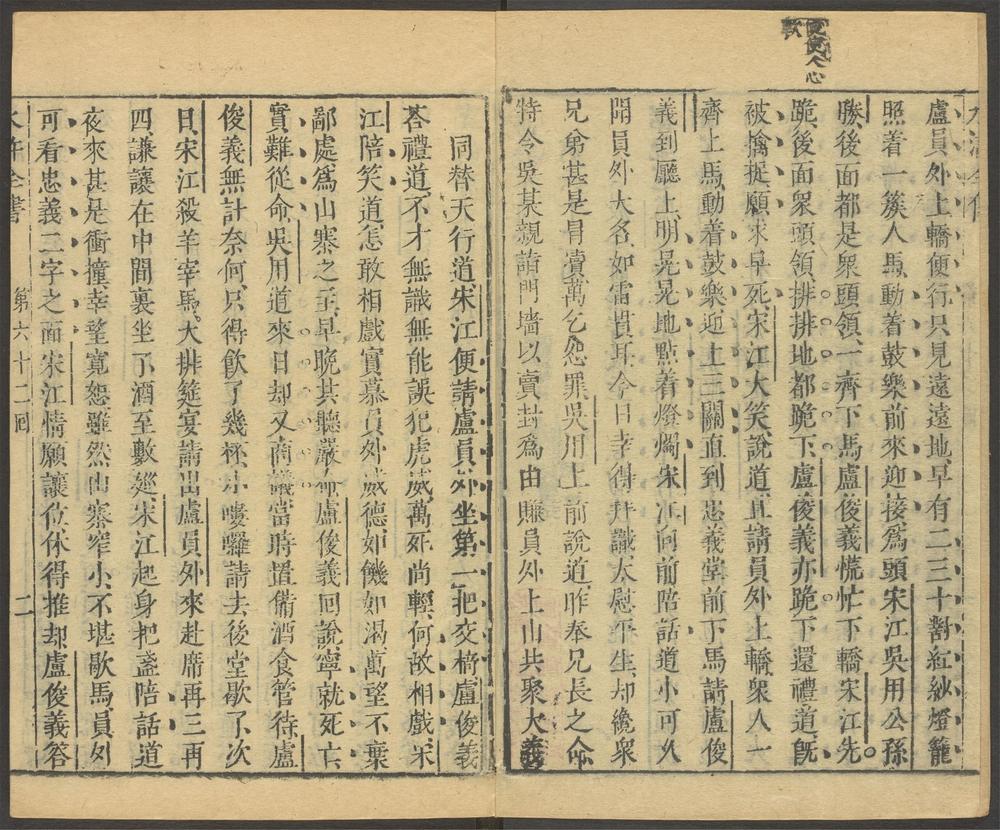 便使人心
軟
盧員外上轎便行只見遠遠地早有二三十對紅紗燈籠
照着一簇人馬動着鼓樂前來迎接爲頭宋江吳用公孫
勝後面都是衆頭領一齊下馬盧俊義慌忙下轎宋江先
跪後面衆頭領排排地都跪下盧俊義亦跪下還禮道旣
被擒捉願求早死宋江大笑說道且請員外上轎衆人一
齊上馬動着鼓樂迎上三關直到忠義堂前下馬請盧俊
義到廳上明晃晃地點着燈燭宋江向前陪話道小可久
聞員外大名如雷貫耳今日幸得拜識大慰平生却纔衆
兄弟甚是冒瀆萬乞恕罪吳用上前說道昨奉兄長之命
特令吳某親詣門墻以賣卦爲由賺員外上山共聚大義
同替天行道宋江便請盧員外坐第一把交椅盧俊義
荅禮道不才無識無能誤犯虎威萬死尚輕何故相戲宋
江陪笑道怎敢相戲實慕員外威德如饑如渴萬望不棄
鄙處爲山寨之主早晚共聽嚴命盧俊義回說寧就死亡
實難從命吳用道來日却又商議當時置備酒食管待盧
俊義無計奈何只得飲了幾杯小嘍囉請去後堂歇了次
日宋江殺羊宰馬大排筵宴請出盧員外來赴席再三再
四謙讓在中間裏坐了酒至數廵宋江起身把盞陪話道
夜來甚是衝撞幸望寬恕雖然山寨窄小不堪歇馬員外
可看忠義二字之面宋江情願讓位休得推却盧俊義答
水滸全書
第六十二回
二